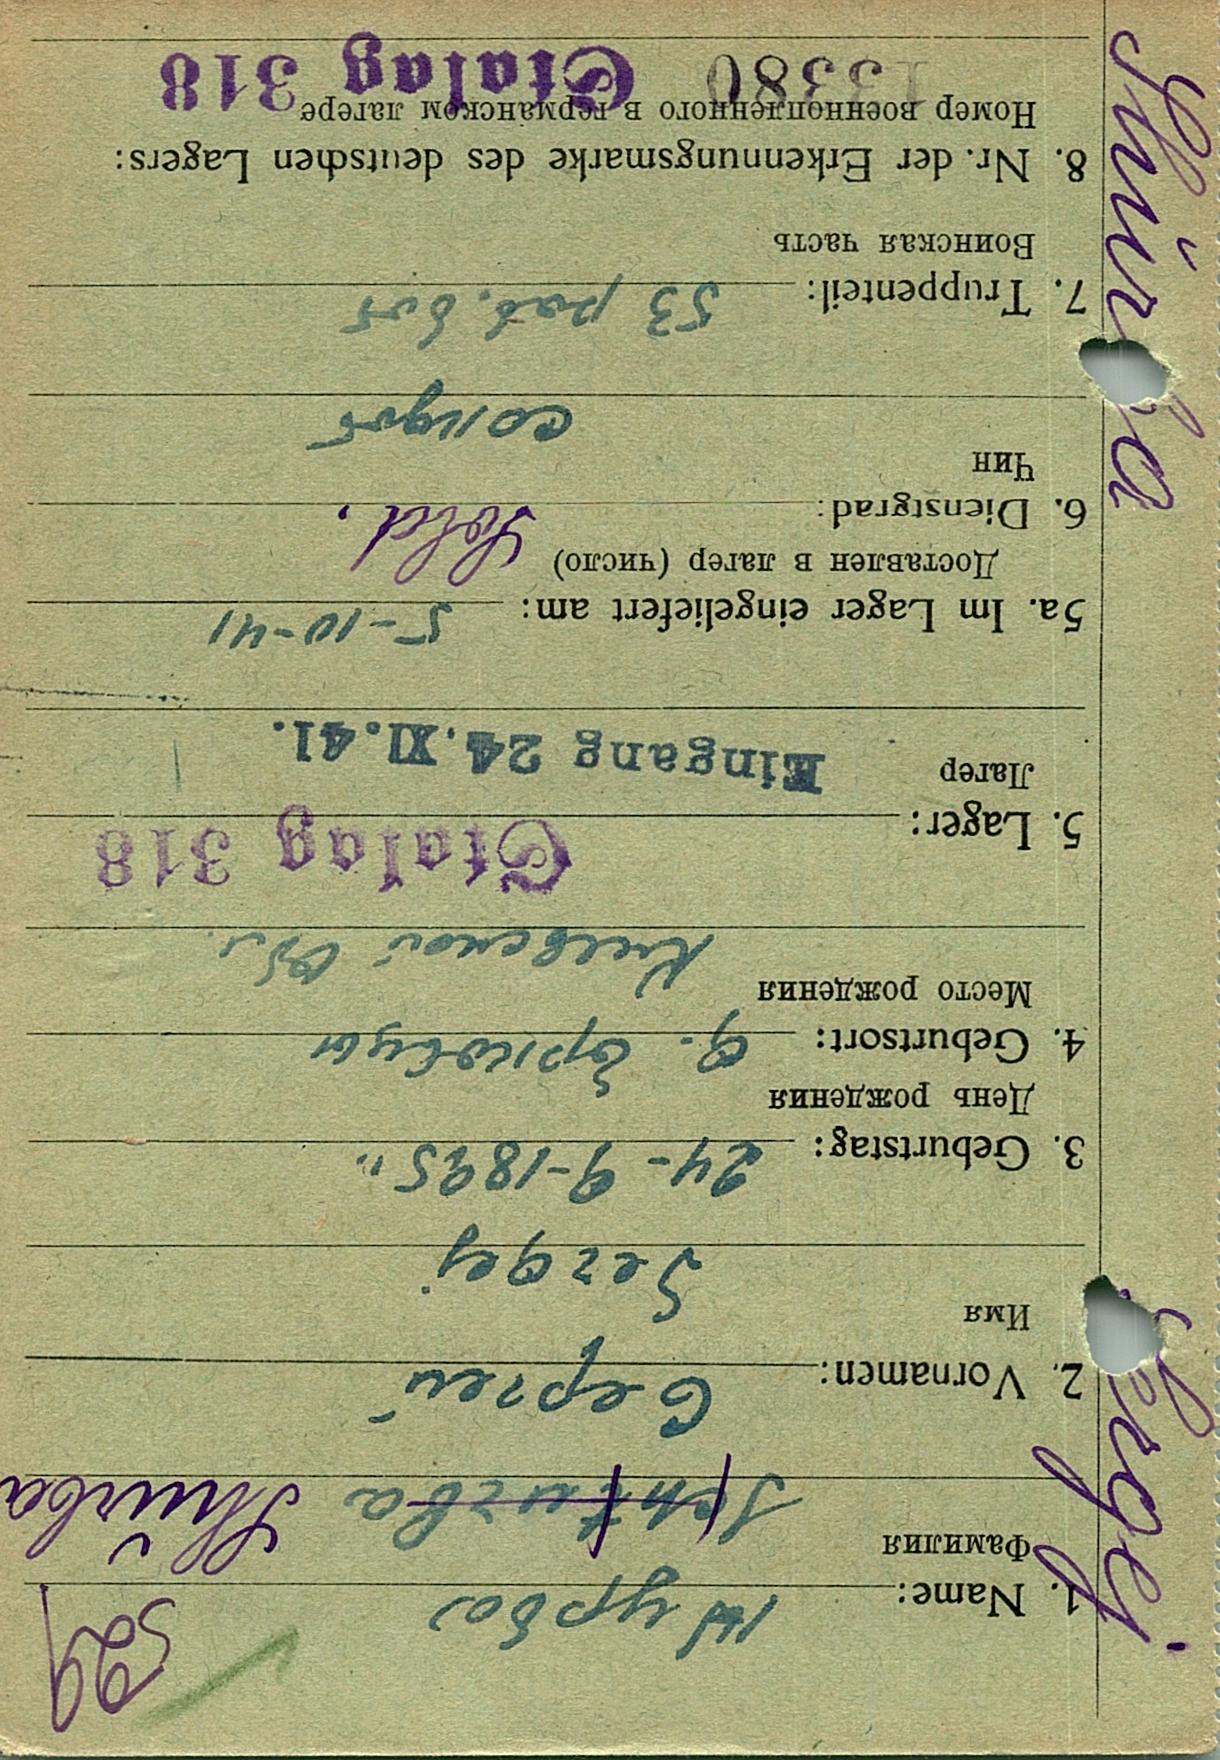 529
1. Name: Щурба
Фамилия
Schturba Shürba
2. Vornamen: Сергей
Имя
Sergej
3. Geburtstag: 24-9-1895
День рождения
4. Geburtsort:
Место рождения
Киевской обл.
5. Lager: Stalag 318
Лагер
Eingang 24.XI.41.
5a. Im Lager eingeliefert am: 5-10-41
Доставлен в лагер (число)
6. Dienstgrad: Sold.
Чин
солдат
7. Truppenteil: 53 раб. бат
Воинская часть
8. Nr. der Erkennungsmarke des deutschen Lagers:
Номер военнопленного в германском лагере
13380 Stalag 318
Sergej Shürba